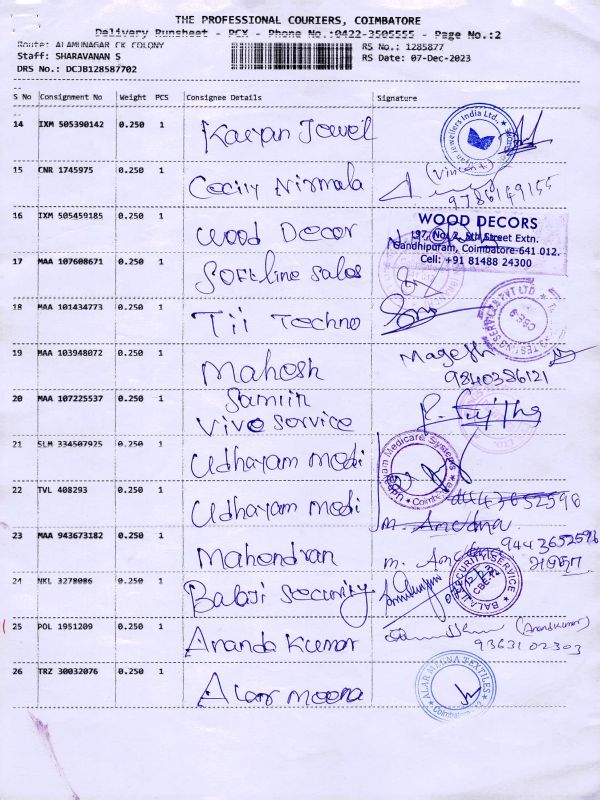 THE PROFESSIONAL COURIERS, COIMBATORE
Delivery Runsheet - PCX - Phone No.:0422-3505555 - Page No.:2
Route: ALAMUNAGAR CK COLONY
RS No.: 1285877
Staff: SHARAVANAN S
RS Date: 07-Dec-2023
DRS No.: DCJB128587702
S No Consignment No Weight PCS Consignee Details Signature
14 IXM 505390142 0.250 1 Karpan Jewel
15 CNR 1745975 0.250 1 Cecily Nirmala
9786149155
16 IXM 505459185 0.250 1 Wood Decor
WOOD DECORS
197, No. 2, 8th Street Extn.
Gandhipuram, Coimbatore-641 012.
Cell: +91 81488 24300
17 MAA 107608671 0.250 1 Softline Sales
18 MAA 101434773 0.250 1 Tii Techno
19 MAA 103948072 0.250 1 Mahesh Magesh
9840386121
20 MAA 107225537 0.250 1 Samiin
Vivo Service
21 SLM 334507925 0.250 1 Udhayam Medi
Udhayam Medicare Systems Coimbatore
22 TVL 408293 0.250 1 Udhayam Medi
23 MAA 943673182 0.250 1 Mahendran
9443652596
24 NKL 3278086 0.250 1 Balaji Security
BALAJI SECURITY SERVICE
CBE
25 POL 1951209 0.250 1 Ananda Kumar (Anandkumar)
9363102303
26 TRZ 30032076 0.250 1 Alar Meena
ALAR MEENA TEXTILES
Coimbatore-12